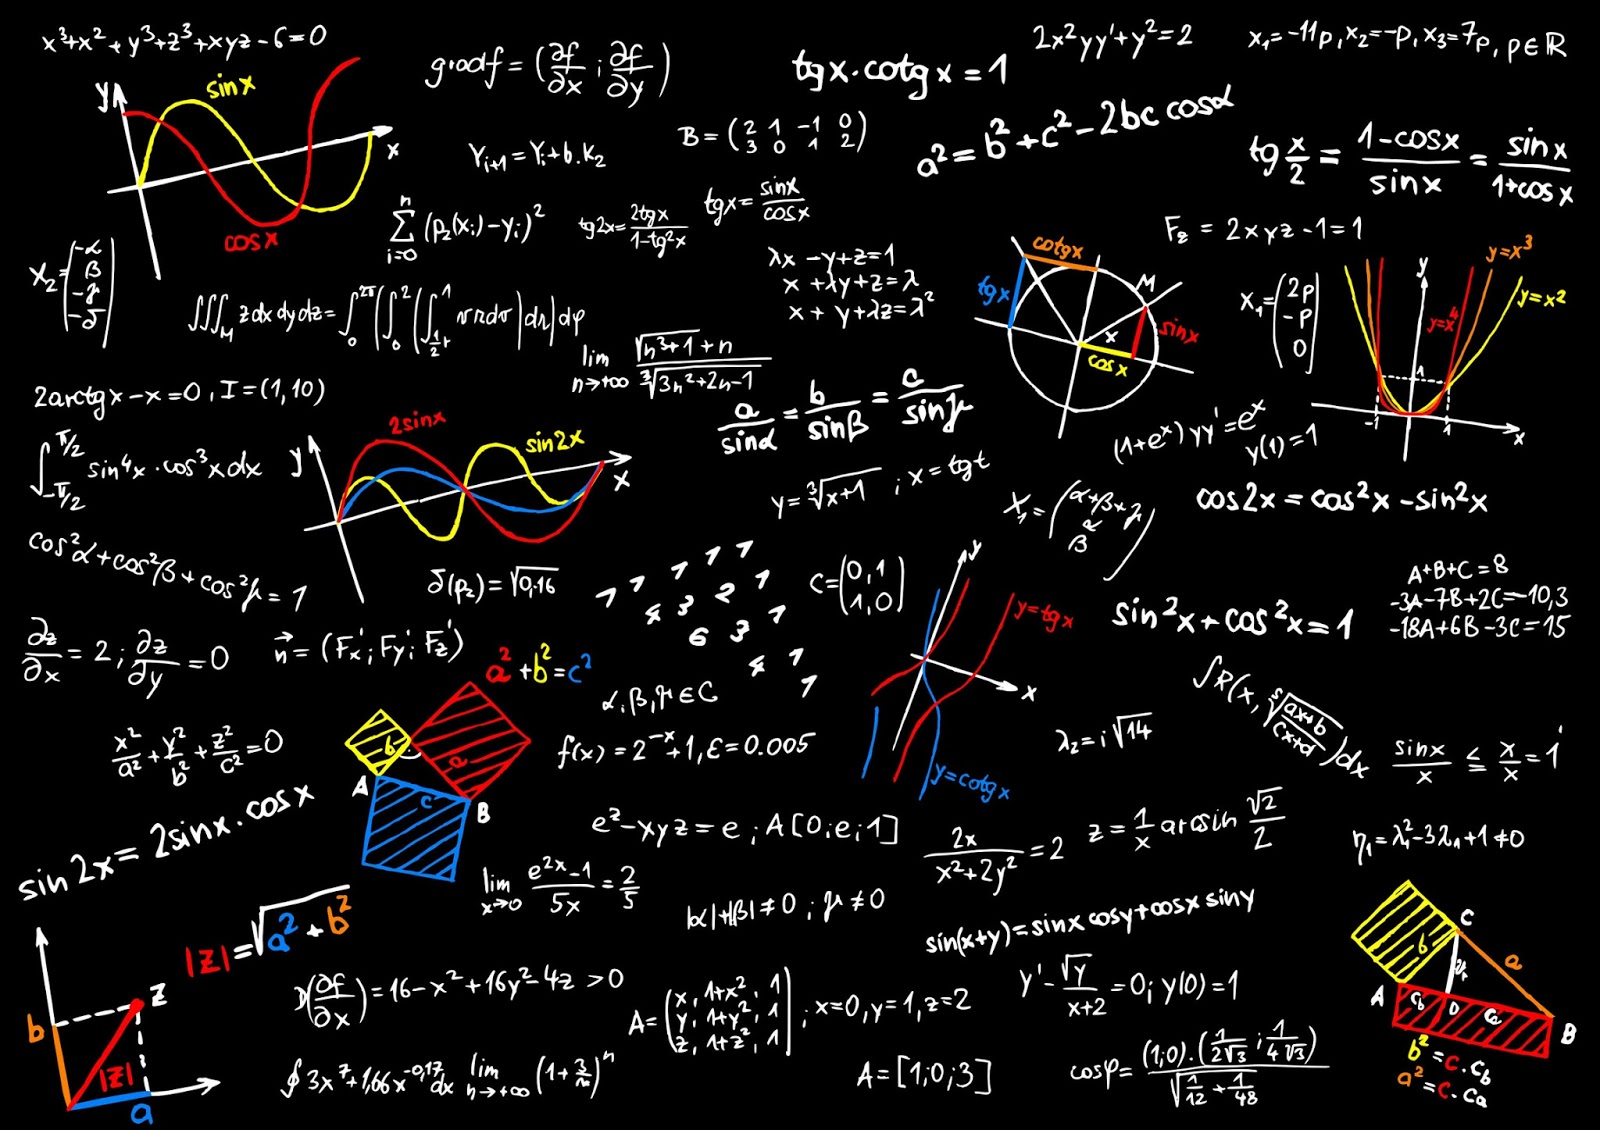 x³+x²+y³+z³+xyz-6=0
gradf = (∂f/∂x ; ∂f/∂y)
tgx·cotgx=1
2x²yy'+y²=2
x₁=-11p, x₂=-p, x₃=7p, p∈ℝ
y
sinx
x
cosx
Y_{i+1} = Y_i + b.K₂
B = (2 1 -1 0
3 0 1 2)
a² = b²+c²-2bc cosα
tg x/2 = (1-cosx)/sinx = sinx/(1+cosx)
∑_{i=0}^{n} (p₂(x_i)-y_i)²
tg2x = 2tgx/(1-tg²x)
tgx = sinx/cosx
F_z = 2xyz-1=1
X₂ = (-α
β
-γ
-δ)
λx -y+z=1
x +λy+z=λ
x + y+λz=λ²
cotgx
tgx
M
x
sinx
cosx
X₁ = (2p
-p
0)
y
y=x³
y=x²
y=x⁴
1
-1
1
x
∭_M zdxdydz = ∫_0^{2π}
lim n→+∞ (√(n³+1)+n)/∛(3n²+2n-1)
2arctgx-x=0, I=(1,10)
a/sinα = b/sinβ = c/sinγ
(1+eˣ)yy'=eˣ
y(1)=1
∫_{-π/2}^{π/2} sin⁴x·cos³xdx
y
2sinx
sin2x
x
y=∛(x+1) ; x=tgt
X₁ = (α+β+γ
α
β)
cos2x = cos²x-sin²x
cos²α+cos²β+cos²γ=1
δ(p₂)=√0,16
1 1 1 1 1
4 3 2 1
6 3 1
4 1
1
C=(0,1
1,0)
y
y=tgx
x
y=cotgx
sin²x+cos²x=1
A+B+C=8
-3A-7B+2C=-10,3
-18A+6B-3C=15
∂z/∂x = 2; ∂z/∂y = 0
n⃗ = (F'x; F'y; F'z)
a²+b²=c²
b
a
A
c
B
α,β,γ∈C
∫R(x, ⁵√((ax+b)/(cx+d)))dx
x²/a²+y²/b²+z²/c²=0
f(x)=2⁻ˣ+1, ε=0.005
λ₂=i√14
sinx/x ≤ x/x = 1
sin2x=2sinx·cosx
e^z-xyz=e; A[0;e;1]
2x/(x²+2y²)=2
z=1/x arcsin √2/2
η₁=λ₁²-3λ₁+1≠0
lim x→0 (e^{2x}-1)/5x = 2/5
|α|+|β|≠0 ; γ≠0
sin(x+y)=sinxcosy+cosxsiny
|z|=√(a²+b²)
z
b
|z|
a
D(∂f/∂x)=16-x²+16y²-4z >0
A=(x, 1+x², 1
y, 1+y², 1
z, 1+z², 1) ; x=0, y=1, z=2
y'-√y/(x+2)=0; y(0)=1
C
b
a
A
c_b
D
c_a
B
b²=c.c_b
a²=c.c_a
∮3x⁷+1,66x^{-0,17}dx
lim n→+∞ (1+3/n)ⁿ
A=[1;0;3]
cosφ = (1;0).(1/(2√3) ; 1/(4√3)) / √(1/12+1/48)